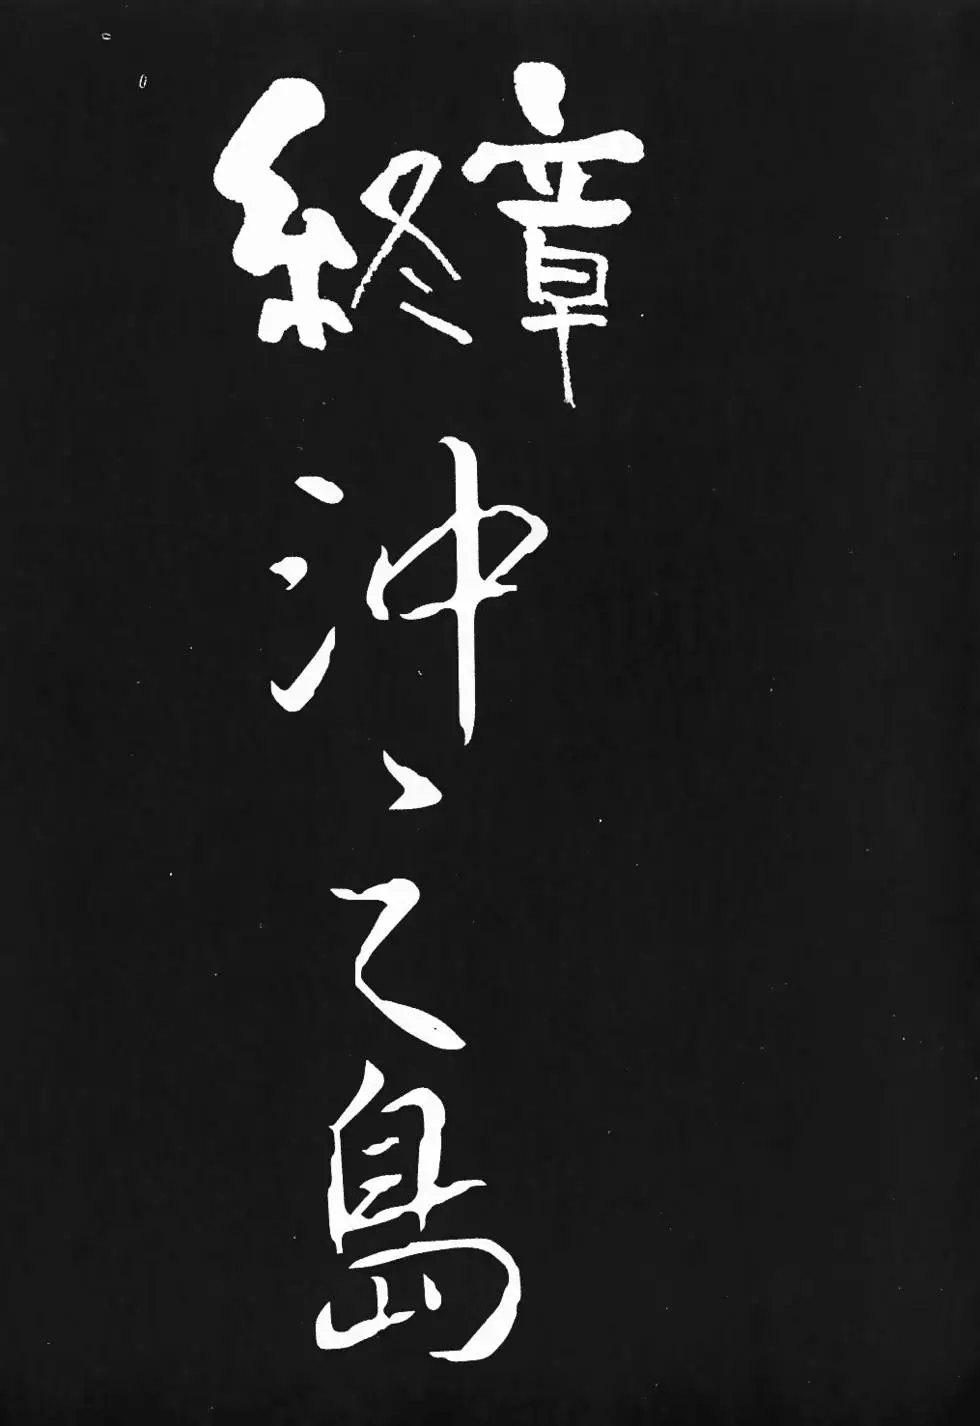 終章
沖之島